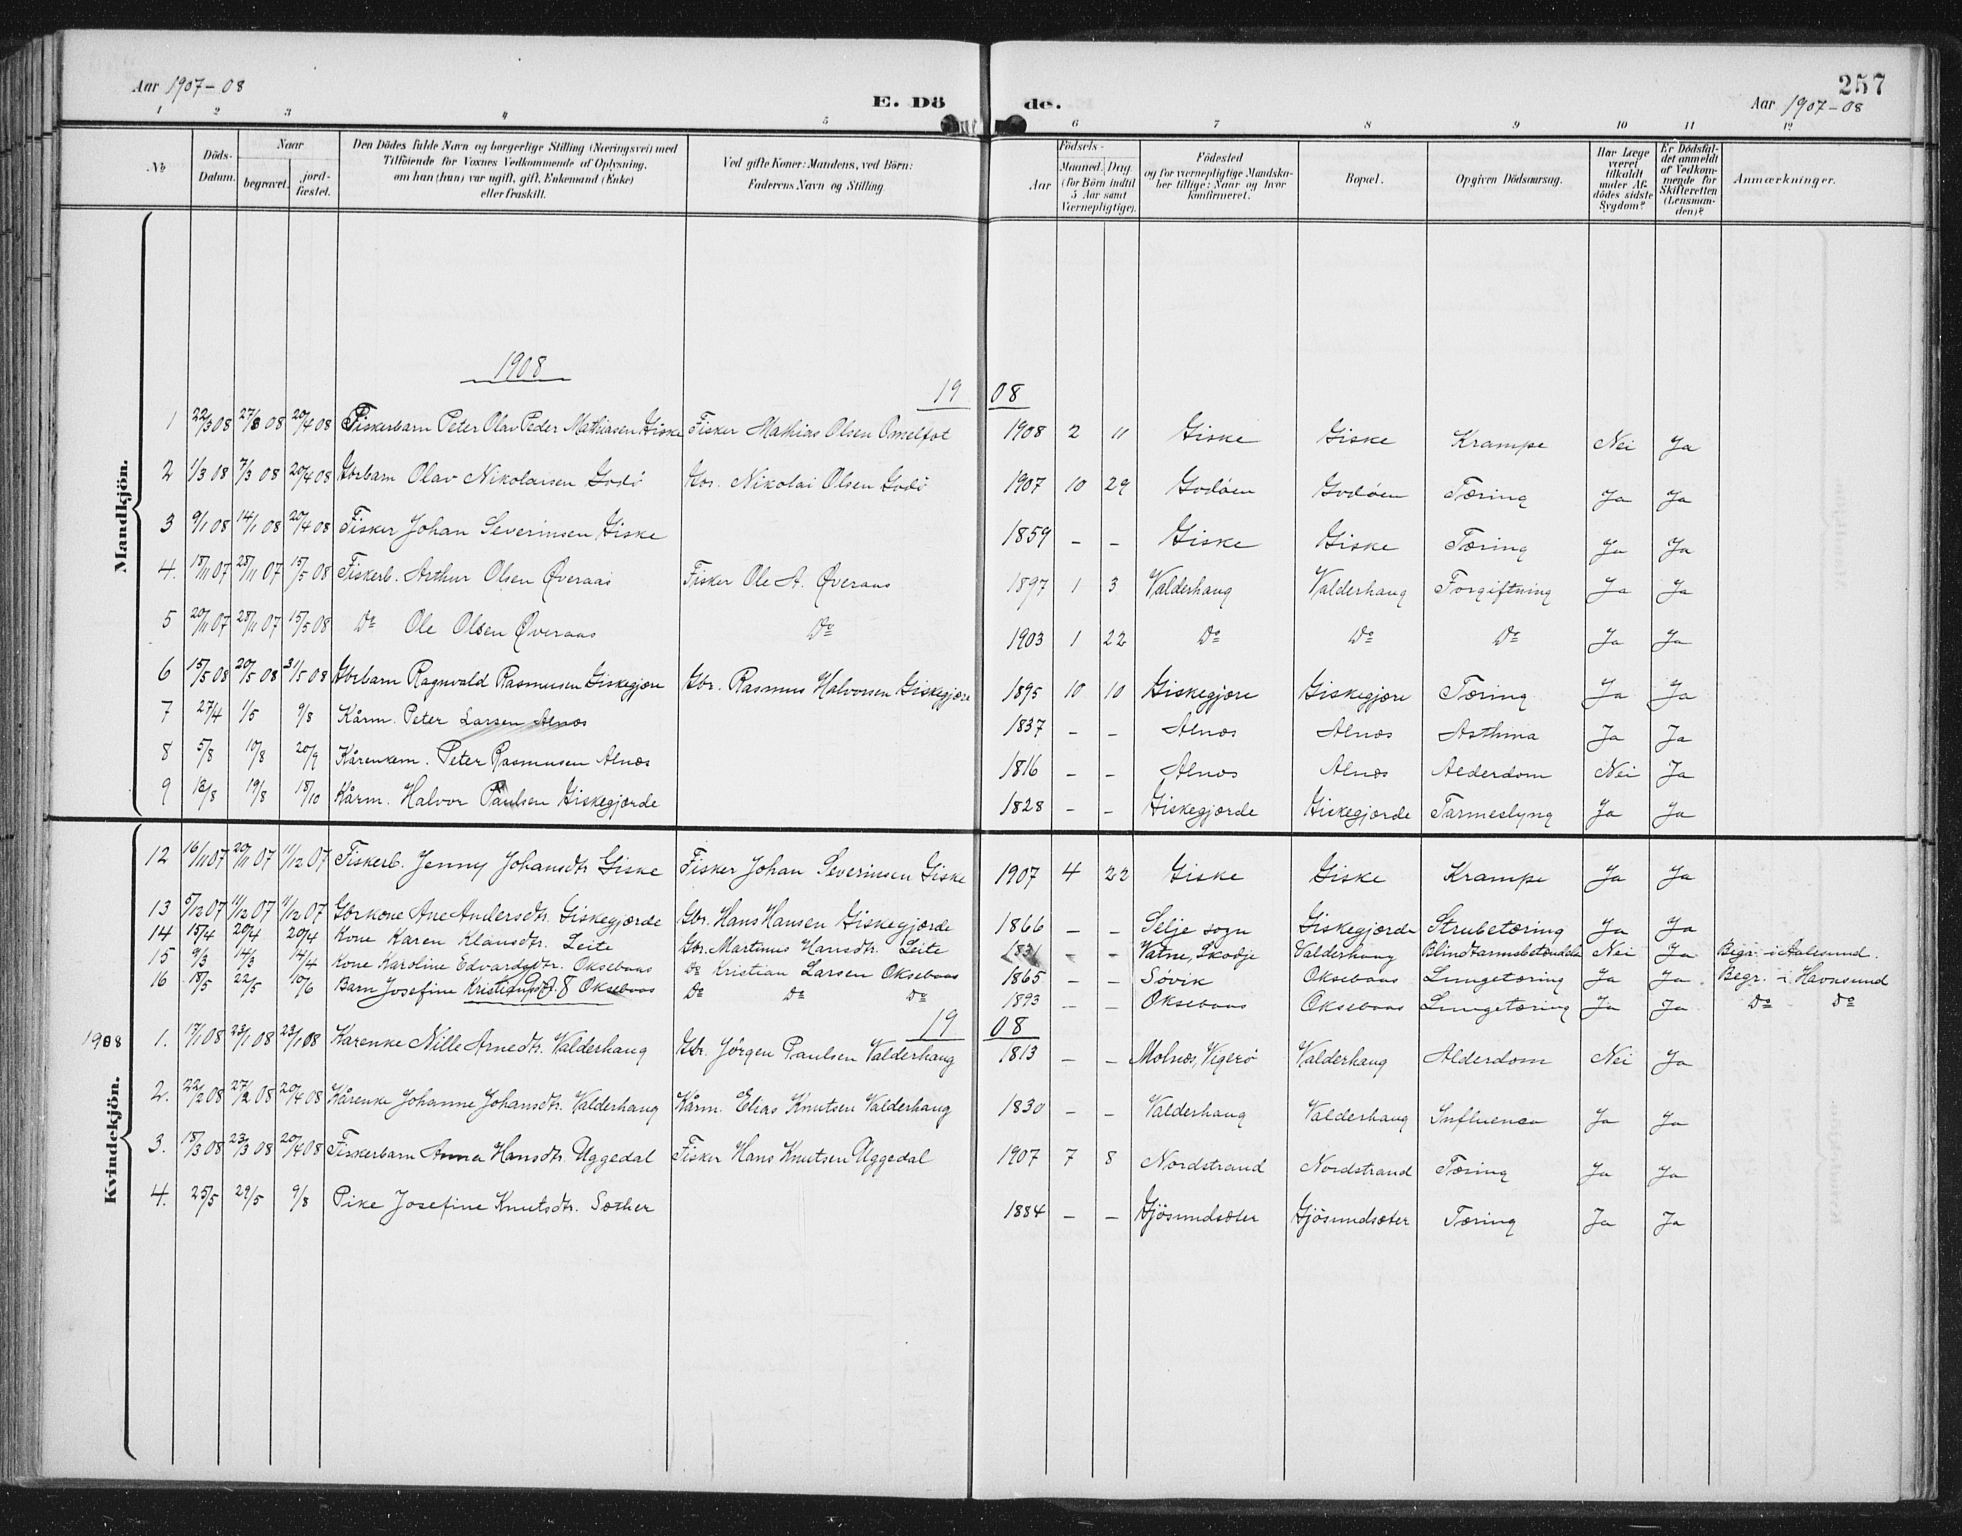 Aar 1907-08
E. Dö de.
257
Aar 1907-08
1 2 3 4 5 6 7 8 9 10 11 12
No
Döds-Datum.
Naar
begravet.
jord-fæstet.
Den Dödes fulde Navn og borgerlige Stilling (Næringsvei) med
Tilföiende for Voxnes Vedkommende af Oplysning,
om han (hun) var ugift, gift, Enkemand (Enke)
eller fraskilt.
Ved gifte Koner: Mandens, ved Börn:
Faderens Navn og Stilling
Födsels-
Aar
Maaned. Dag.
(for Börn indtil
5 Aar samt
Værnepligtige).
Födested
og for værnepligtige Mandska-
ber tillige: Naar og hvor
konfirmeret.
Bopæl.
Opgiven Dödsaarsag.
Har Læge
været
tilkaldt
under Af-
dödes sidste
Sygdom?
Er Dödsfal-
det anmeldt
af Vedkom-
mende for
Skifteretten
(Lensman-
den)?
Anmærkninger.
Mandkjön.
1908
19 08
1 22/3 08 27/3 08 20/4 08 Fiskerbarn Peter Olav Peder Mathiasen Giske Fisker Mathias Olsen 1908 2 11 Giske Giske Krampe Nei Ja
2 1/3 08 7/3 08 20/4 08 Gbrbarn Olav Nikolaisen Godö Nikolai Olsen Godö 1907 10 29 Godøen Godøen Tæring Ja Ja
3 9/1 08 14/1 08 20/4 08 Fisker Johan Severinsen Giske 1859 – – Giske Giske Tæring Ja Ja
4. 18/11 07 28/11 07 15/5 08 Fiskerb. Arthur Olsen Øveraas Fisker Ole A. Øveraas 1897 1 3 Valderhaug Valderhaug Forgiftning Ja Ja
5 20/11 07 28/11 07 15/5 08 Do Ole Olsen Øveraas Do 1903 1 22 Do Do Do Ja Ja
6 15/5 08 20/5 08 31/5 08 Gbrbarn Ragnvald Rasmusen Giskegjære Gbr. Rasmus Halvorsen Giskegjære 1895 10 10 Giskegjære Giskegjære Tæring Ja Ja
7 27/4 1/5 9/8 Kårm. Peter Larsen Alnæs 1837 – – Alnæs Alnæs Asthma Ja Ja
8 5/8 10/8 20/9 Kårenkem. Peter Rasmusen Alnæs 1816 – – Alnæs Alnæs Alderdom Nei Ja
9 12/8 19/8 18/10 Kårm. Halvor Paulsen Giskegjærde 1828 – – Giskegjærde Giskegjærde Tarmeslyng Ja Ja
Kvindekjön.
12 16/11 07 20/11 07 11/12 07 Fiskerb. Jenny Johansdtr Giske Fisker Johan Severinsen Giske 1907 4 22 Giske Giske Krampe Ja Ja
13 5/12 07 11/12 07 11/12 07 Gbrkone Ane Andersdtr. Giskegjærde Gbr. Hans Hansen Giskegjærde 1866 – – Selje sogn Giskegjærde Strubetæring Ja Ja
14 15/4 20/4 20/4 Kone Karen Klausdtr. Leite Gbr. Martinus Hansdtr. Leite 1831 – – Vatne, Skodje Valderhaug Blindtarmsbetændelse Nei Ja Begr. i Aalesund.
15 9/3 14/3 14/4 Kone Karoline Edvardsdtr. Oksebaas Do Kristian Larsen Oksebaas 1865 – – Søvik Oksebaas Lungetæring Ja Ja Begr. i Havnsund
16 18/5 22/5 10/6 Barn Josefine Oksebaas Do Do Do 1893 – – Oksebaas Oksebaas Lungetæring Ja Ja Do Do
19 08
1908 1. 17/1 08 23/1 08 23/1 08 Karenke Nille Arnedtr. Valderhaug Gbr. Jørgen Paulsen Valderhaug 1813 – – Molnæs, Vigerö Valderhaug Alderdom Nei Ja
2. 22/2 08 27/2 08 20/4 08 Kårenke Johanne Johansdtr. Valderhaug Kårm. Elias Knutsen Valderhaug 1830 – – Valderhaug Valderhaug Influenca Ja Ja
3. 18/3 08 23/3 08 20/4 08 Fiskerbarn Anna Hansdtr. Uggedal Fisker Hans Knutsen Uggedal 1907 7 8 Nordstrand Nordstrand Tæring Ja Ja
4. 25/5 29/5 9/8 Pike Josefine Knutsdtr. Sæther 1884 – – Gjösundsæter Gjösundsæter Tæring Ja Ja